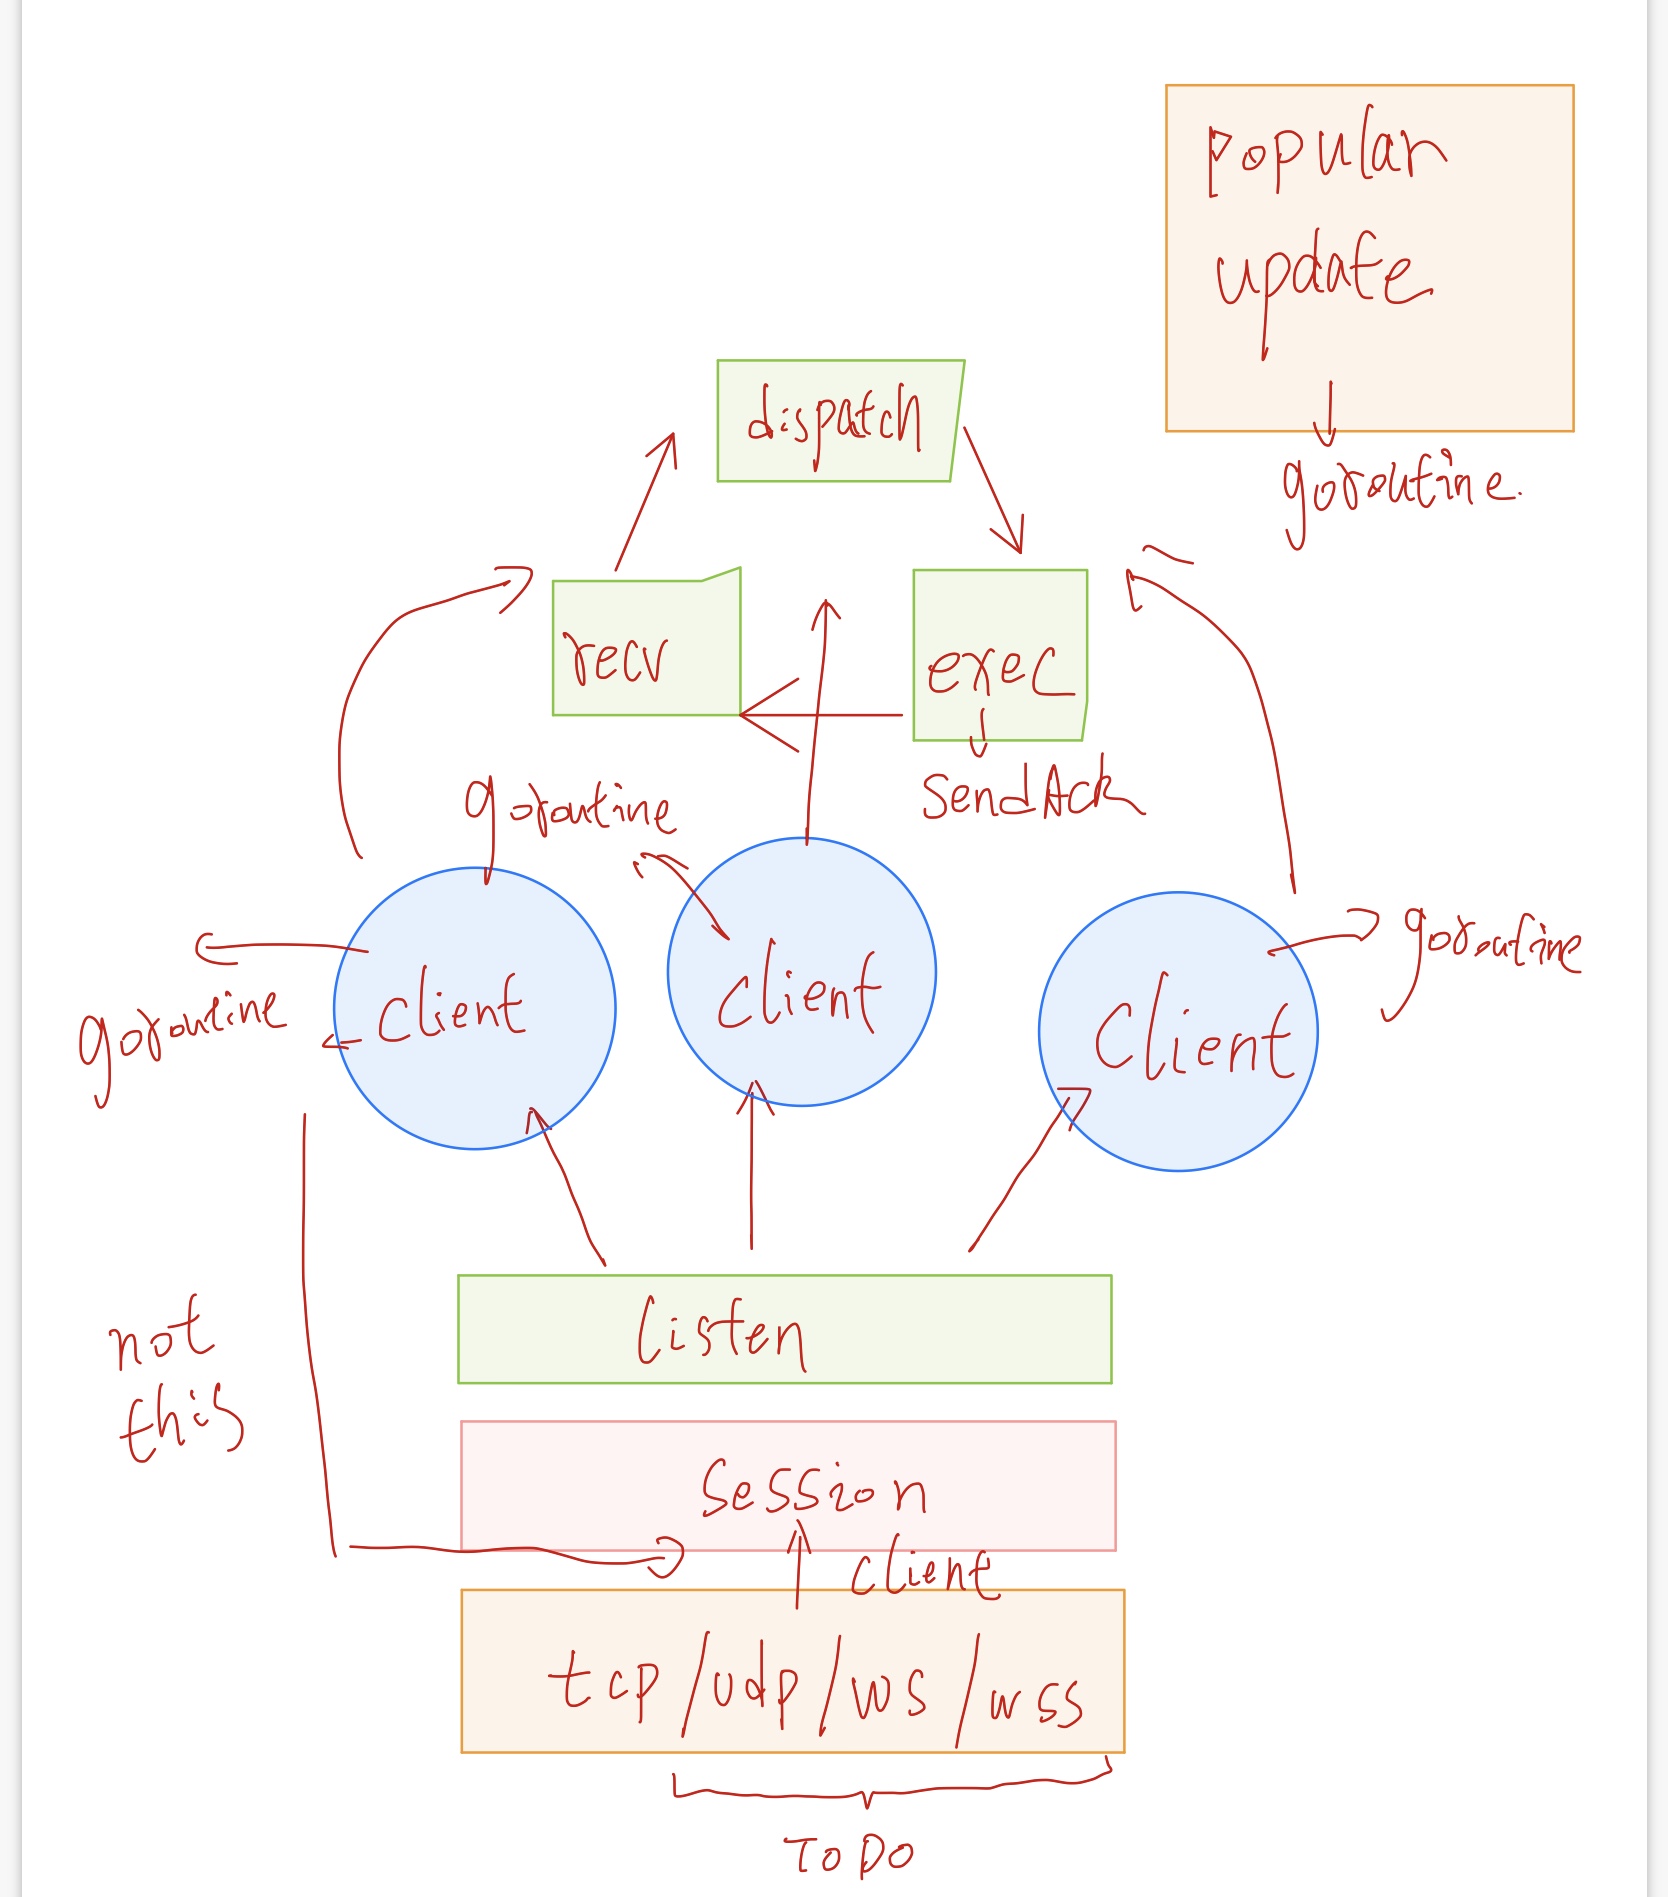 popular
update
goroutine.
dispatch
recv
exec
SendAck
goroutine
client
client
client
goroutine
goroutine
listen
not
this
Session
client
tcp/udp/ws/wss
ToDo